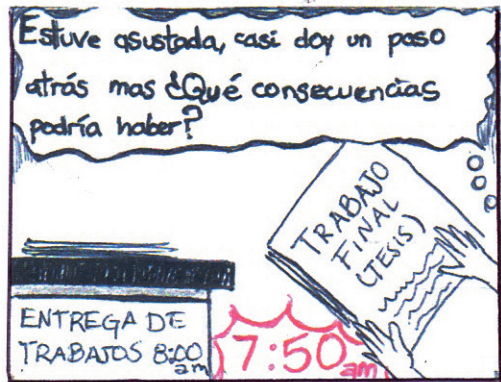 Estuve asustada, casi doy un paso
atrás mas ¿Qué consecuencias
podría haber?
TRABAJO
FINAL
(TESIS)
ENTREGA DE
TRABAJOS 8:00
am
7:50
am